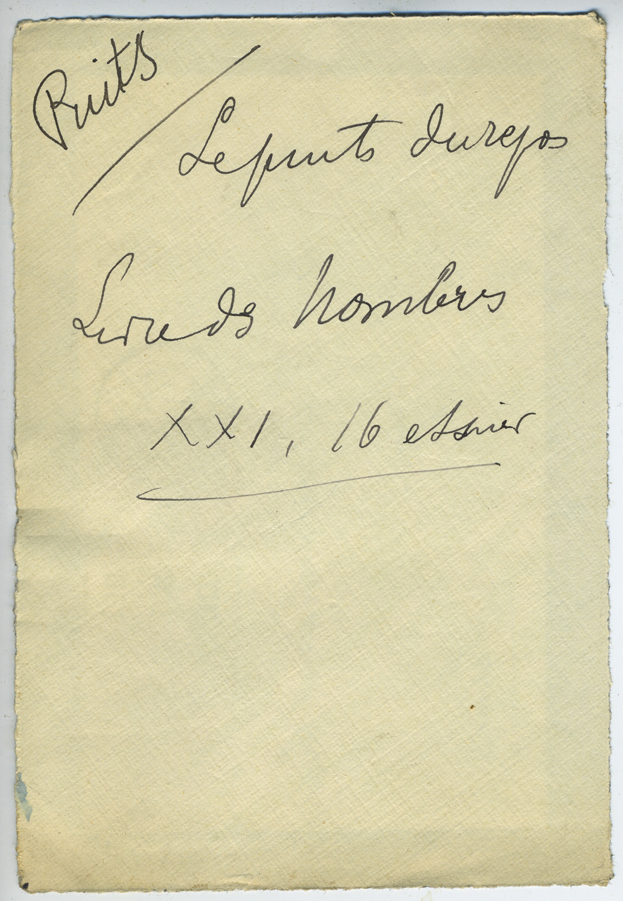 Puits
Le puits du repos
Livre des Nombres
XXI, 16 et suiv